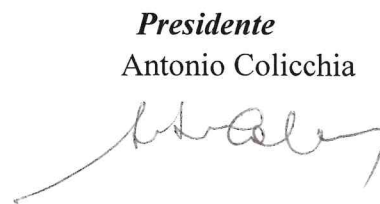 Presidente
Antonio Colicchia